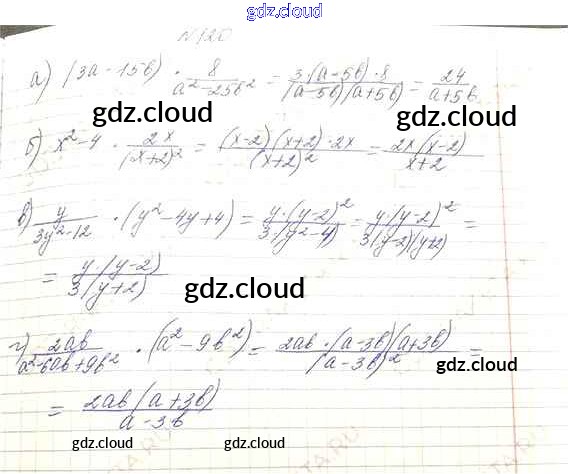 gdz.cloud
N 120
а) (3a-15b) · 8/(a²-25b²) = 3·(a-5b)·8/((a-5b)(a+5b)) = 24/(a+5b)
gdz.cloud gdz.cloud
б) x²-4 · 2x/(x+2)² = (x-2)(x+2)·2x/(x+2)² = 2x(x-2)/(x+2)
в) y/(3y²-12) · (y²-4y+4) = y·(y-2)²/(3·(y²-4)) = y·(y-2)²/(3(y-2)(y+2)) =
= y(y-2)/(3(y+2))
gdz.cloud
г) 2ab/(a²-6ab+9b²) · (a²-9b²) = 2ab·(a-3b)(a+3b)/(a-3b)² =
= 2ab(a+3b)/(a-3b)
gdz.cloud gdz.cloud